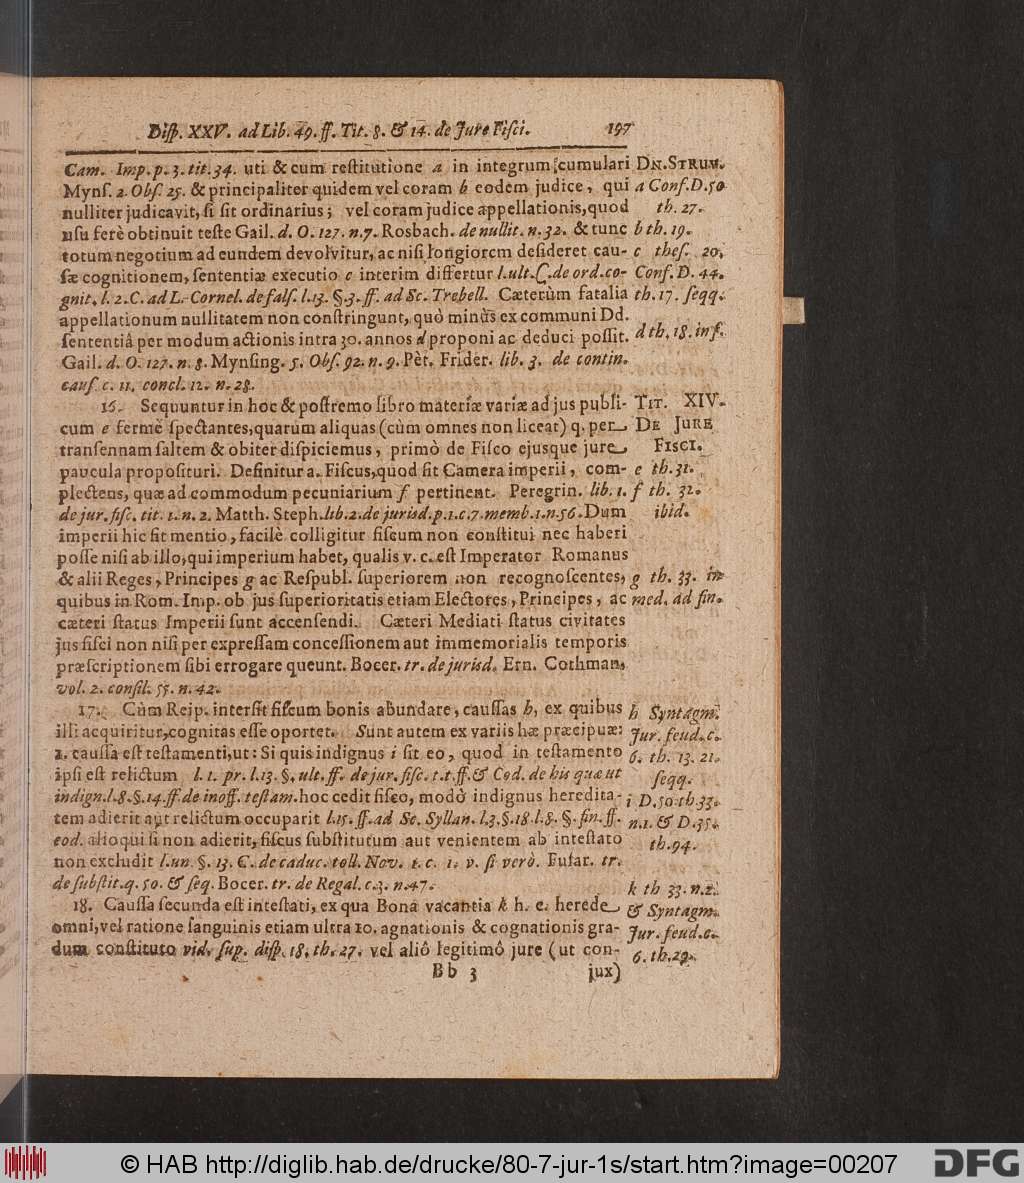 Disp. XXV. ad Lib. 49. ff. Tit. 8. & 14. de Jure Fisci. 197
Cam. Imp. p. 3. tit. 34. uti & cum restitutione a in integrum cumulari
Mynſ. 2. Obſ. 25. & principaliter quidem vel coram b eodem judice, qui
nulliter judicavit, ſi ſit ordinarius; vel coram judice appellationis, quod
uſu ferè obtinuit teſte Gail. d. O. 127. n. 7. Rosbach. de nullit. n. 32. & tunc
totum negotium ad eundem devolvitur, ac niſi longiorem deſideret cau-
ſæ cognitionem, ſententiæ executio c interim differtur l. ult. C. de ord. co-
gnit. l. 2. C. ad L. Cornel. de falſ. l. 13. §. 3. ff. ad Sc. Trebell. Cæterùm fatalia
appellationum nullitatem non conſtringunt, quò minùs ex communi Dd.
ſententiâ per modum actionis intra 30. annos d proponi ac deduci poſſit.
Gail. d. O. 127. n. 8. Mynſing. 5. Obſ. 92. n. 9. Pet. Frider. lib. 3. de contin.
cauſ. c. 11. concl. 12. n. 28.
16. Sequuntur in hoc & poſtremo libro materiæ variæ ad jus publi-
cum e fermè ſpectantes, quarum aliquas (cùm omnes non liceat) q. per
tranſennam ſaltem & obiter diſpiciemus, primò de Fiſco ejusque jure
paucula propoſituri. Definitur a. Fiſcus, quod ſit Camera imperii, com-
plectens, quæ ad commodum pecuniarium f pertinent. Peregrin. lib. 1.
de jur. fiſc. tit. 1. n. 2. Matth. Steph. lib. 2. de jurisd. p. 1. c. 7. memb. 1. n. 56. Dum
imperii hic ſit mentio, facilè colligitur fiſcum non conſtitui nec haberi
poſſe niſi ab illo, qui imperium habet, qualis v. c. eſt Imperator Romanus
& alii Reges, Principes g ac Reſpubl. ſuperiorem non recognoſcentes,
quibus in Rom. Imp. ob jus ſuperioritatis etiam Electores, Principes, ac
cæteri ſtatus Imperii ſunt accenſendi. Cæteri Mediati ſtatus civitates
jus fiſci non niſi per expreſſam conceſſionem aut immemorialis temporis
præſcriptionem ſibi errogare queunt. Bocer. tr. de jurisd. Ern. Cothman.
vol. 2. conſil. 55. n. 42.
17. Cùm Reip. interſit fiſcum bonis abundare, cauſſas h, ex quibus
illi acquiritur, cognitas eſſe oportet. Sunt autem ex variis hæ præcipuæ:
1. cauſſa eſt teſtamenti, ut: Si quis indignus i ſit eo, quod in teſtamento
ipſi eſt relictum l. 1. pr. l. 13. §. ult. ff. de jur. fiſc. t. t. ff. & Cod. de his quæ ut
indign. l. 8. §. 14. ff. de inoff. teſtam. hoc cedit fiſco, modò indignus heredita-
tem adierit aut relictum occuparit l. 15. ff. ad Sc. Syllan. l. 3. §. 18 l. 8. §. fin. ff.
eod. alioqui ſi non adierit, fiſcus ſubſtitutum aut venientem ab inteſtato
non excludit l. un. §. 13. C. de caduc. toll. Nov. 1. c. 1. v. ſi verò. Fuſar. tr.
de ſubſtit. q. 50. & ſeq. Bocer. tr. de Regal. c. 3. n. 47.
18. Cauſſa ſecunda eſt inteſtati, ex qua Bona vacantia k h. e. herede
omni, vel ratione ſanguinis etiam ultra 10. agnationis & cognationis gra-
dum conſtituto vid. ſup. diſp. 18. th. 27. vel aliô legitimô jure (ut con-
Bb 3 jux)
DN. STRUV.
a Conf. D. 50
th. 27.
b th. 19.
c theſ. 20.
Conf. D. 44.
th. 17. ſeqq.
d th. 18. in f.
TIT. XIV.
DE JURE
FISCI.
e th. 31.
f th. 32.
ibid.
g th. 33. in
med. ad fin.
h Syntagm.
Jur. feud. c.
6. th. 13. 21.
ſeqq.
i D. 50 th 33.
n. 1. & D. 35.
th. 94.
k th 33. n. 2.
& Syntagm.
Jur. feud. c.
6. th. 29.
© HAB http://diglib.hab.de/drucke/80-7-jur-1s/start.htm?image=00207
DFG